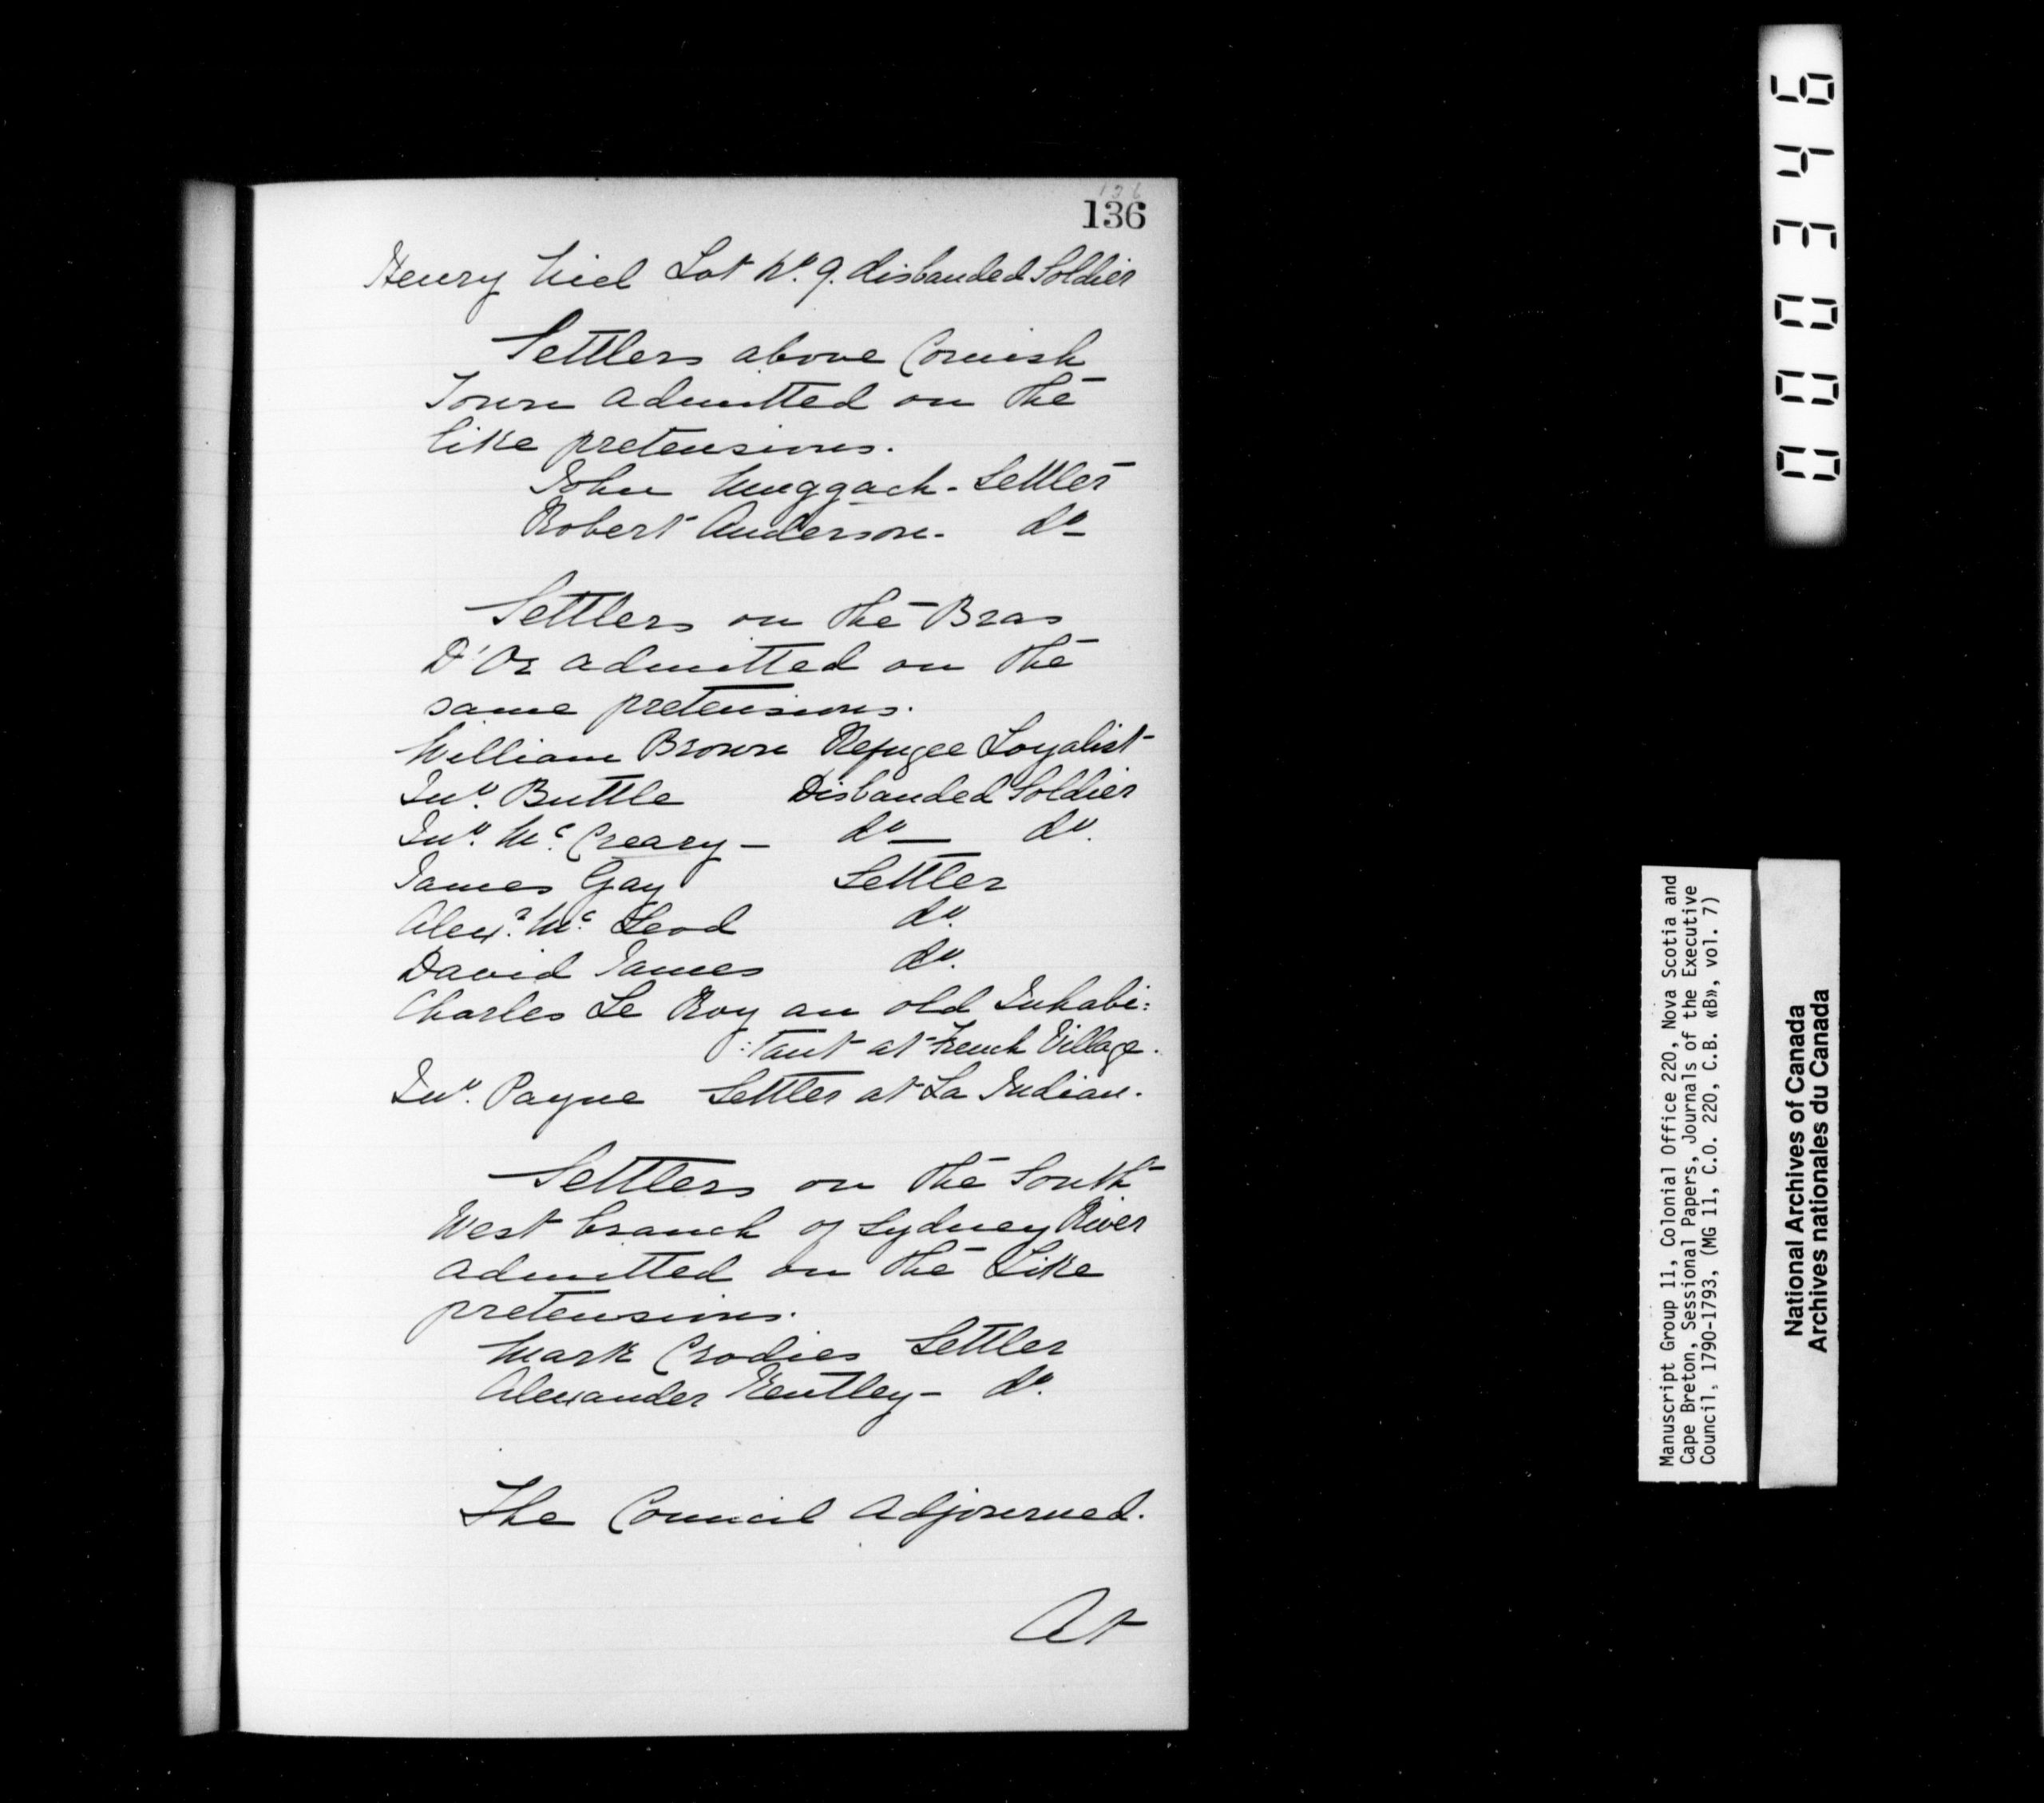 136
136
Henry Niel Lot No. 9. disbanded Soldier
Settlers above Cornish
Town admitted on the
like pretensions.
John Muggach - Settler
Robert Anderson - do
Settlers on the Bras
D'Or admitted on the
same pretensions.
William Brown Refugee Loyalist
Jno. Buttle Disbanded Soldier
Jno. Mc. Creary - do — do.
James Gay Settler
Alexr. Mc. Leod do.
David James do.
Charles Le Roy an old Inhabi:
:tant at French Village.
Jno. Payne Settler at La Indian.
Settlers on the South
West branch of Sydney River
admitted on the Like
pretensions.
Mark Crodies Settler
Alexander Kentley - do.
The Council adjourned.
At
000346
Manuscript Group 11, Colonial Office 220, Nova Scotia and
Cape Breton, Sessional Papers, Journals of the Executive
Council, 1790-1793, (MG 11, C.O. 220, C.B. «B», vol. 7)
National Archives of Canada
Archives nationales du Canada